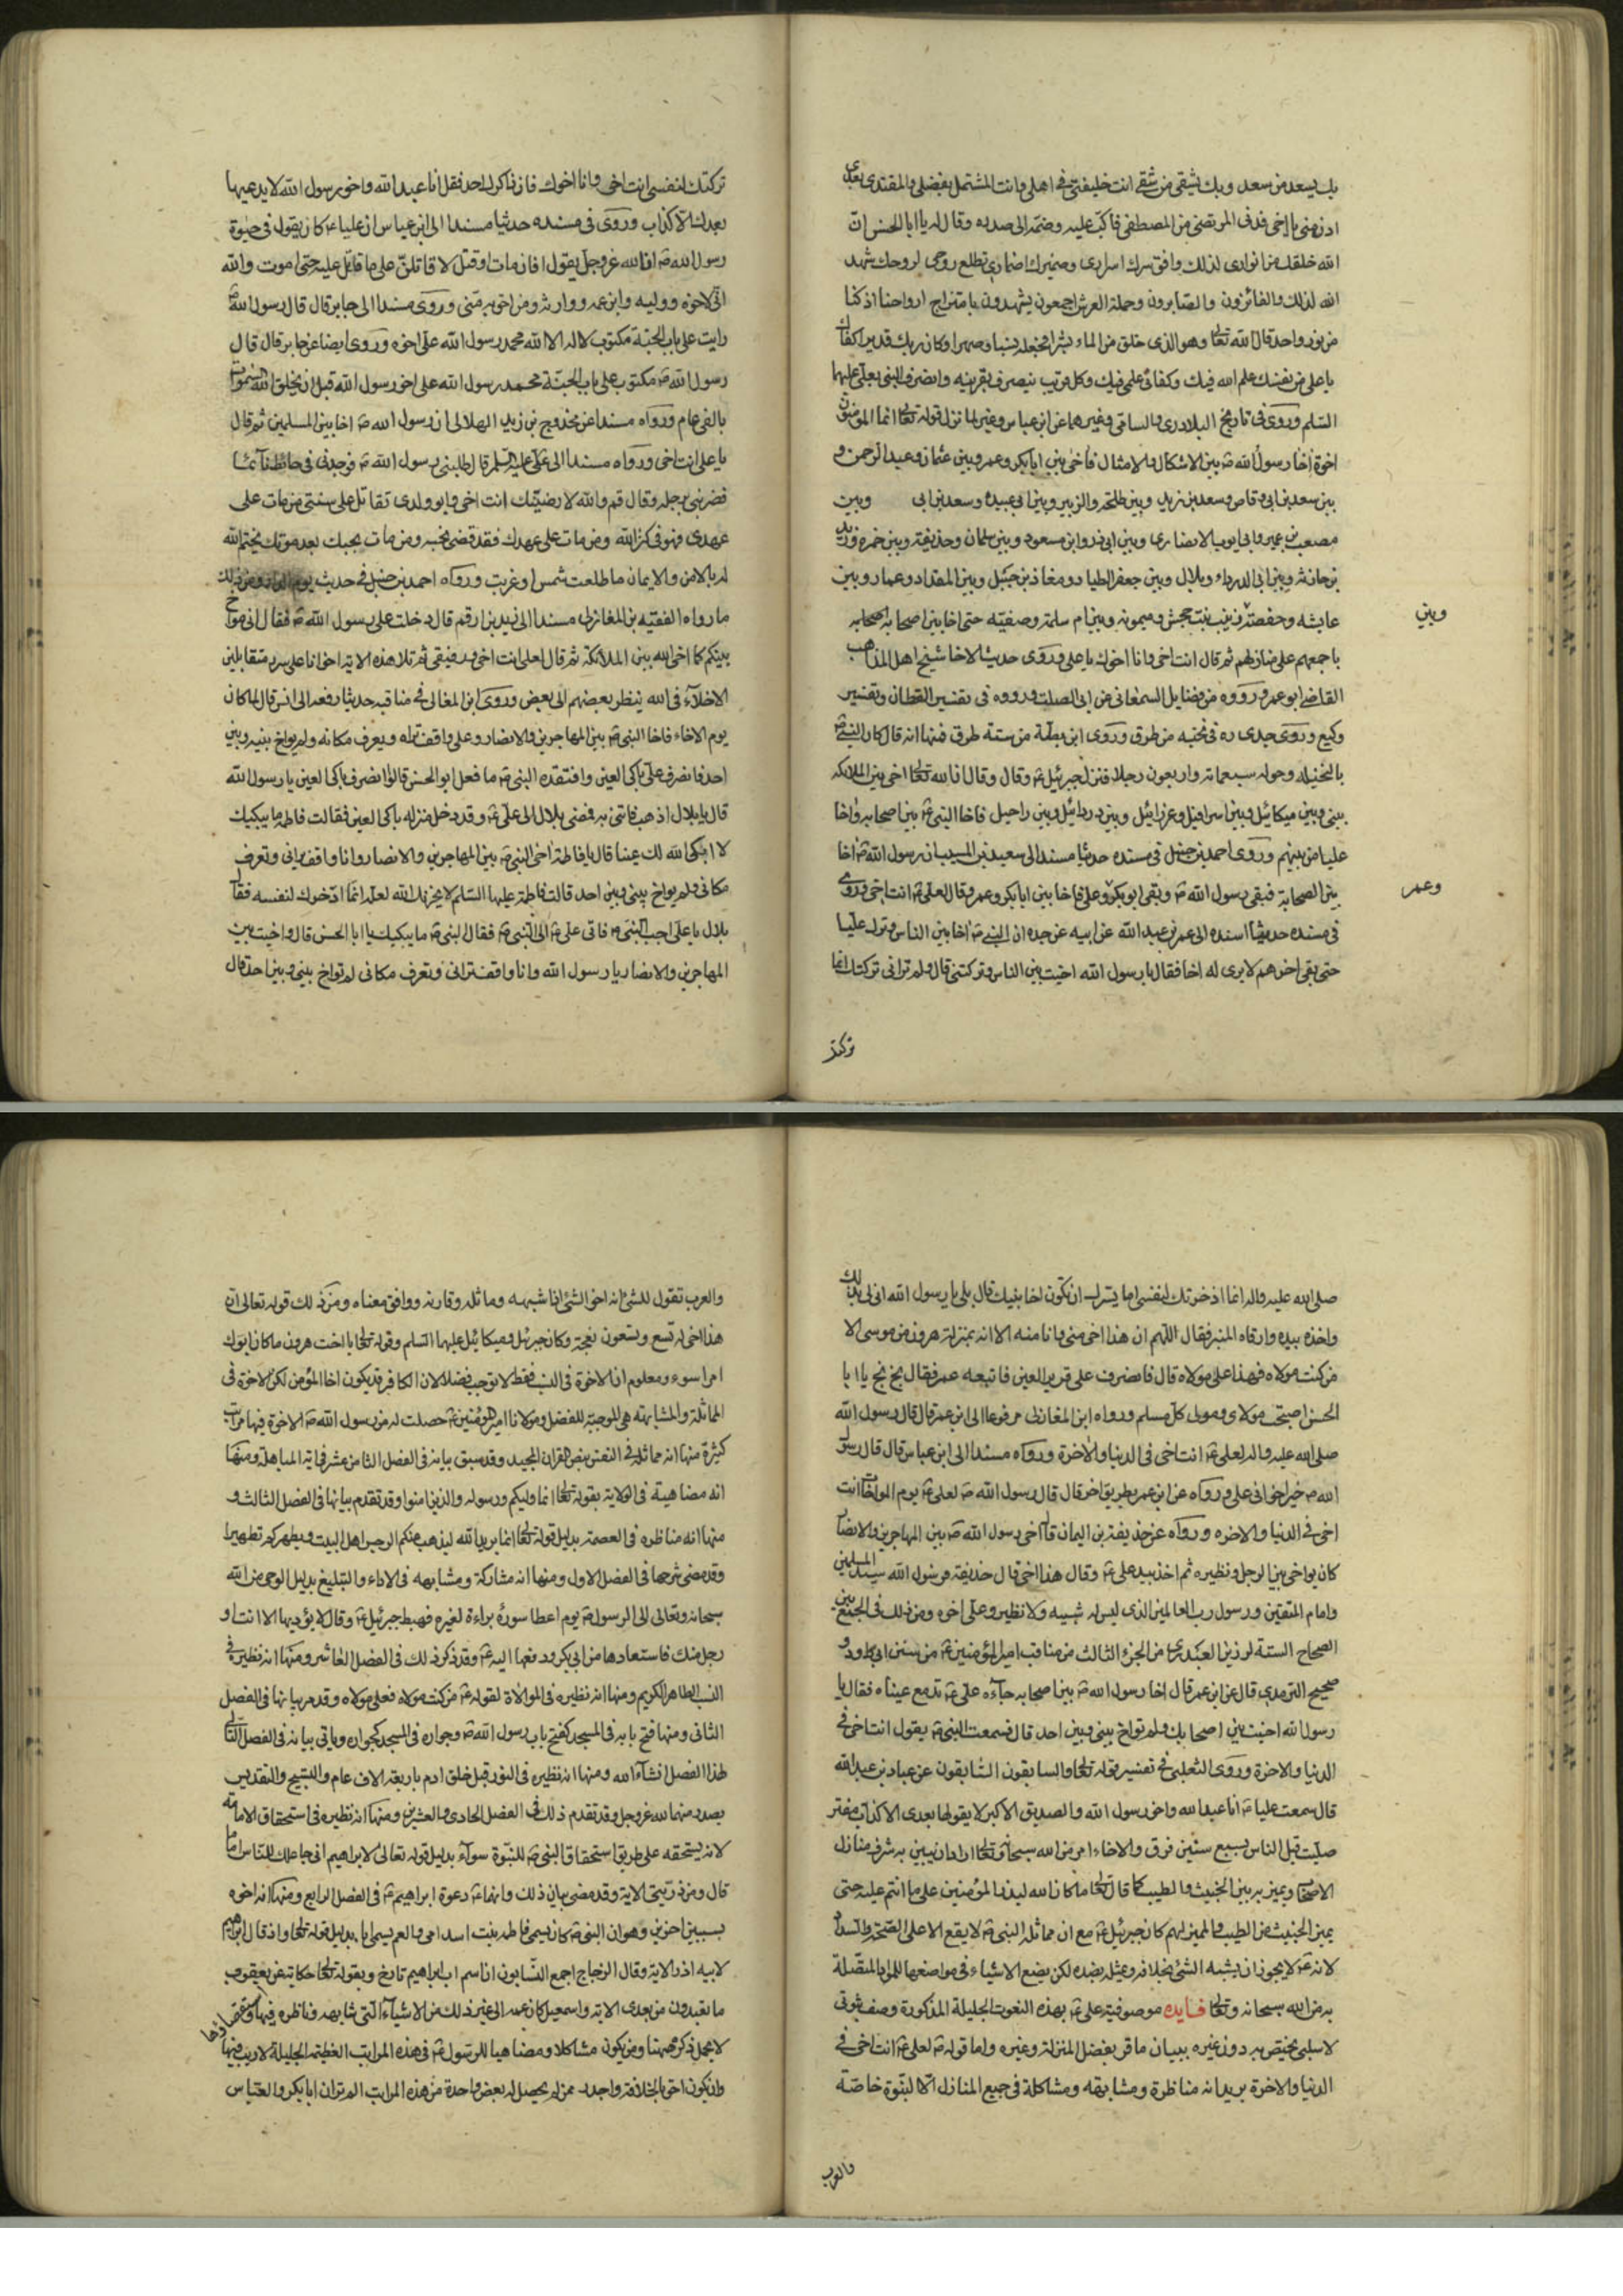 بك يسعد من سعد وبك يشقى من شقى انت خليفتى فى اهلى وانت المشتمل بفضلى والمقتدى بعدى
ادن منى يا اخى فدنى المرتضى من المصطفى فاكب عليه وضمه الى صدره وقال له يا ابا الحسن ان
الله خلقك من انوارى لذلك وافق سرك اسرارى وضميرك اضمارى تطلع روحى لروحك شهد
الله لذلك والفائزون والصابرون وحملة العرش اجمعون يشهدون بامتزاج ارواحنا اذ كنا
من نور واحد قال الله تعالى وهو الذى خلق من الماء بشرا فجعله نسبا وصهرا وكان ربك قديرا كفاك
يا على من نفسك علم الله فيك وكفانى علمى فيك وكل قريب ينصرف بقرينه وانصرف النبى بعلى عليهما
السلم وروى فى تاريخ البلاذرى والسلامى وغيرهما عن ابن عباس وغيره لما نزل قوله تعالى انما المؤمنون
اخوة اخا رسول الله ص بين الاشكال والامثال فاخى بين ابابكر وعمر وبين عثمان وعبد الرحمن و
بين سعد بن ابى وقاص وسعيد بن زيد وبين طلحة والزبير وبين ابى عبيدة وسعد بن ابى وبين
مصعب بن عمير وابى ايوب الانصارى وبين ابى ذر وابن مسعود وبين سلمان وحذيفة وبين حمزة وزيد
بن حارثه وبين ابى الدرداء وبلال وبين جعفر الطيار ومعاذ بن جبل وبين المقداد وعمار وبين
عايشه وحفصة زينب بنت جحش وميمونه وبين ام سلمة وصفيه حتى اخا بين اصحابه باصحابه
وبين
باجمعهم على منازلهم ثم قال انت اخى وانا اخوك يا على وروى حديث الاخا شيخ اهل المذاهب
القاضى ابو عمرو ورووه من فضايل السمعانى عن ابى الصلت ورووه فى تفسير القطان وتفسير
وكيع وروى جدى ره فى نخبه من طرق وروى ابن بطة من ستة طرق فمنها انه قال كان النبى ص
بالنخيله وحوله سبعمائة واربعون رجلا فنزل جبرئيل ع وقال وقال ان الله تعالى اخى بين الملائكه
بينى وبين ميكائيل وبين اسرافيل وعزرائيل وبين دردائيل وبين راحيل فاخا النبى ع بين اصحابه واخا
عليا من بينهم وروى احمد بن حنبل فى مسنده حديثا مسندا الى سعيد بن المسيب ان رسول الله ص اخا
بين الصحابة فبقى رسول الله ص وبقى ابو بكر وعلى فاخا بين ابابكر وعمر وقال لعلى ع انت اخى وروى
وعمر
فى مسنده حديثا اسنده الى عمر بن عبد الله عن ابيه عن جده ان النبى ص اخا بين الناس وترك عليا
حتى بقى اخرهم لا يرى له اخا فقال يا رسول الله اخيت بين الناس وتركتنى قال ولم ترانى تركتك انما
تركتك
تركتك لنفسى انت اخى وانا اخوك فان ذاكرك احد فقل انا عبد الله واخو رسول الله لا يدعيها
بعدك الا كذاب وروى فى مسنده حديثا مسندا الى ابن عباس ان عليا ع كان يقول فى حيوة
رسول الله ص ان الله عز وجل يقول افان مات او قتل لا قاتلن على ما قاتل عليه حتى اموت والله
انى لاخوه ووليه وابن عمه ووارثه ومن احق به منى وروى مسندا الى جابر قال قال رسول الله ص
رايت على باب الجنة مكتوب لا اله الا الله محمد رسول الله على اخوه وروى ايضا عن جابر قال قال
رسول الله ص مكتوب على باب الجنة محمد رسول الله على اخو رسول الله قبل ان يخلق الله السموات
بالفى عام ورواه مسندا عن مخدوج بن زيد الهلالى ان رسول الله ص اخا بين المسلمين ثم قال
يا على انت اخى ورواه مسندا الى على عليه السلم قال طلبنى رسول الله ص فوجدنى فى حائط نائما
فضربنى برجله وقال قم والله لارضينك انت اخى وابو ولدى تقاتل على سنتى من مات على
عهدى فهو فى كنز الله ومن مات على عهدك فقد قضى نحبه ومن مات بحبك بعد موتك يختم الله
له بالامن والايمان ما طلعت شمس او غربت ورواه احمد بن حنبل فى حديث يوم ومن ذلك
ما رواه الفقيه بن المغازلى مسندا الى زيد بن ارقم قال دخلت على رسول الله ص فقال انى مواخ
بينكم كما اخى الله بين الملائكة ثم قال لعلى انت اخى ورفيقى ثم تلا هذه الاية اخوانا على سرر متقابلين
الاخلاء فى الله ينظر بعضهم الى بعض وروى ابن المغازلى فى مناقبه حديثا رفعه الى انس قال لما كان
يوم الاخاء فاخا النبى ص بين المهاجرين والانصار وعلى واقف يراه ويعرف مكانه ولم يواخ بينه وبين
احد فانصرف على باكى العين وافتقده النبى ص ما فعل ابو الحسن قالوا انصرف باكى العين يا رسول الله
قال يا بلال اذهب فاتنى به فمضى بلال الى على ع وقد دخل منزله باكى العين فقالت فاطمه ما يبكيك
لا ابكى الله لك عينا قال يا فاطمة اخى النبى ص بين المهاجرين والانصار وانا واقف يرانى وتعرف
مكانى ولم يواخ بينى وبين احد قالت فاطمة عليها السلم لا يحزنك الله لعله انما ادخرك لنفسه فقال
بلال يا على اجب النبى ص فاتى على ع الى النبى ص فقال النبى ص ما يبكيك يا ابا الحسن قال واخيت بين
المهاجرين والانصار يا رسول الله وانا واقف ترانى وتعرف مكانى لم تواخ بينى وبين احد قال
صلى الله عليه واله انما ادخرتك لنفسى اما يسرك ان تكون اخا نبيك قال بلى يا رسول الله انى لى بذلك
واخذه بيده وارقاه المنبر فقال اللهم ان هذا اخى منى وانا منه الا انه بمنزلة هرون من موسى الا
من كنت مولاه فهذا على مولاه قال فانصرف على قرير العين فاتبعه عمر فقال بخ بخ يا ابا
الحسن اصبحت مولاى ومولى كل مسلم ورواه ابن المغازلى مرفوعا الى ابن عمر قال قال رسول الله
صلى الله عليه واله لعلى ع انت اخى فى الدنيا والاخرة ورواه مسندا الى ابن عباس قال قال رسول
الله ص خير اخوانى على ورواه عن ابن عمر بطريق اخر قال قال رسول الله ص لعلى ع يوم المواخاة انت
اخى فى الدنيا والاخره ورواه عن حذيفة بن اليمان قال اخى رسول الله ص بين المهاجرين والانصار
كان يواخى بين الرجل ونظيره ثم اخذ بيد على ع وقال هذا اخى قال حذيفة فرسول الله سيد المسلمين
وامام المتقين ورسول رب العالمين الذى ليس له شبيه ولا نظير وعلى اخوه ومن ذلك فى الجمع بين
الصحاح الستة لرزين العبدرى من الجزء الثالث من مناقب امير المؤمنين ع من سنن ابى داود و
صحيح الترمدى قال عن ابن عمر قال اخا رسول الله ص بين اصحابه جاءه على ع تدمع عيناه فقال يا
رسول الله اخيت بين اصحابك ولم تواخ بينى وبين احد قال فسمعت النبى ص يقول انت اخى فى
الدنيا والاخرة وروى الثعلبى فى تفسير قوله تعالى والسابقون السابقون عن عباد بن عبد الله
قال سمعت عليا ص انا عبد الله واخو رسول الله والصديق الاكبر لا يقولها بعدى الا كذاب مفتر
صليت قبل الناس بسبع سنين فرق والاخاء امر من الله سبحانه وتعالى اراد ان يبين به شرف منازل
الاصحاب ويميز به بين الخبيث والطيب كما قال تعالى ما كان الله ليذر المؤمنين على ما انتم عليه حتى
يميز الخبيث من الطيب والمميز لهم كان جبرئيل ع مع ان مماثلة النبى ص لا يقع الا على الصحة والسداد
لانه ع لا يجوز ان يشبه الشئ بخلافه ويمثله بضده لكن يضع الاشياء فى مواضعها للمواد المتصلة
به من الله سبحانه وتعالى فايده موصوفية على ع بهذه النعوت الجليلة المذكورة وصف ثبوتى
لا سلبى يختص به دون غيره ببيان ما قر بفضل المنزلة وغيره واما قوله ص لعلى ع انت اخى فى
الدنيا والاخرة يريد انه مناظرة ومشابهة ومشاكلة فى جميع المنازل الا النبوة خاصة
والعرب
والعرب تقول للشئ انه اخو الشئ اذا شبهه وماثله وقارنه ووافق معناه ومن ذلك قوله تعالى ان
هذا اخى له تسع وتسعون نعجة وكان جبرئيل وميكائيل عليهما السلم وقوله تعالى يا اخت هرون ما كان ابوك
امرا سوء ومعلوم ان الاخوة فى النسب فقط لا توجب فضلا لان الكافر قد يكون اخا المؤمن لكن الاخوة فى
المماثلة والمشابهة هى الموجبة للفضل ومولانا امير المؤمنين ع حصلت له من رسول الله ص الاخوة فيها مراتب
كثيرة منها انه مماثله فى النفس بنص القران المجيد وقد سبق بيانه فى الفصل الثامن عشر فى اية المباهلة ومنها
انه مضاهيه فى الولاية بقوله تعالى انما وليكم ورسوله والذين امنوا وقد تقدم بيانها فى الفصل الثالث و
منها انه مناظره فى العصمة بدليل قوله تعالى انما يريد الله ليذهب عنكم الرجس اهل البيت ويطهركم تطهيرا
وقد مضى شرحها فى الفصل الاول ومنها انه مشاركة ومشابهه فى الاداء والتبليغ بدليل الوحى من الله
سبحانه وتعالى الى الرسول ص يوم اعطا سورة براءة لغيره فهبط جبرئيل ع وقال لا يؤديها الا انت او
رجل منك فاستعادها من ابى بكر ودفعها اليه ع وقد ذكر ذلك فى الفصل العاشر ومنها انه نظيره فى
النسب الطاهر الكريم ومنها انه نظيره فى الموالاة لقوله ع من كنت مولاه فعلى مولاه وقد مر بيانها فى الفصل
الثانى ومنها فتح بابه فى المسجد كفتح باب رسول الله ص وجواره فى المسجد كجواره وياتى بيانه فى الفصل التالى
لهذا الفصل انشاء الله ومنها انه نظيره فى النور قبل خلق ادم باربعة الاف عام والتسبيح والتقديس
يصدر منهما لله عز وجل وقد تقدم ذلك فى الفصل الحادى والعشرين ومنها انه نظيره فى استحقاق الامامة
لانه يستحقه على طريق استحقاق النبى ص للنبوة سواء بدليل قوله تعالى لابراهيم انى جاعلك للناس اماما
قال ومن ذريتى الاية وقد مضى بيان ذلك وانهما ع دعوة ابراهيم ع فى الفصل الرابع ومنها انه اخوه
بسببين اخرين وهو ان النبى ص كان يسمى فاطمه بنت اسد امى والعم يسمى ابا بدليل قوله تعالى واذ قال ابراهيم
لابيه ازر الاية وقال الزجاج اجمع النسابون ان اسم اب ابراهيم تارخ وبقوله تعالى حكاية عن يعقوب
ما تعبدون من بعدى الاية واسمعيل كان عمه الى غير ذلك من الاشياء التى شابهه وناظره فيها
لا يحمل ذكرها ههنا ومن يكون مشاكلا ومضاهيا للرسول ع فى هذه المراتب العظيمة الجليلة لا ريب فيها
وان يكون احق بالخلافة واجدر ممن لم يحصل له بعض واحدة من هذه المراتب الم تر ان ابابكر والعباس